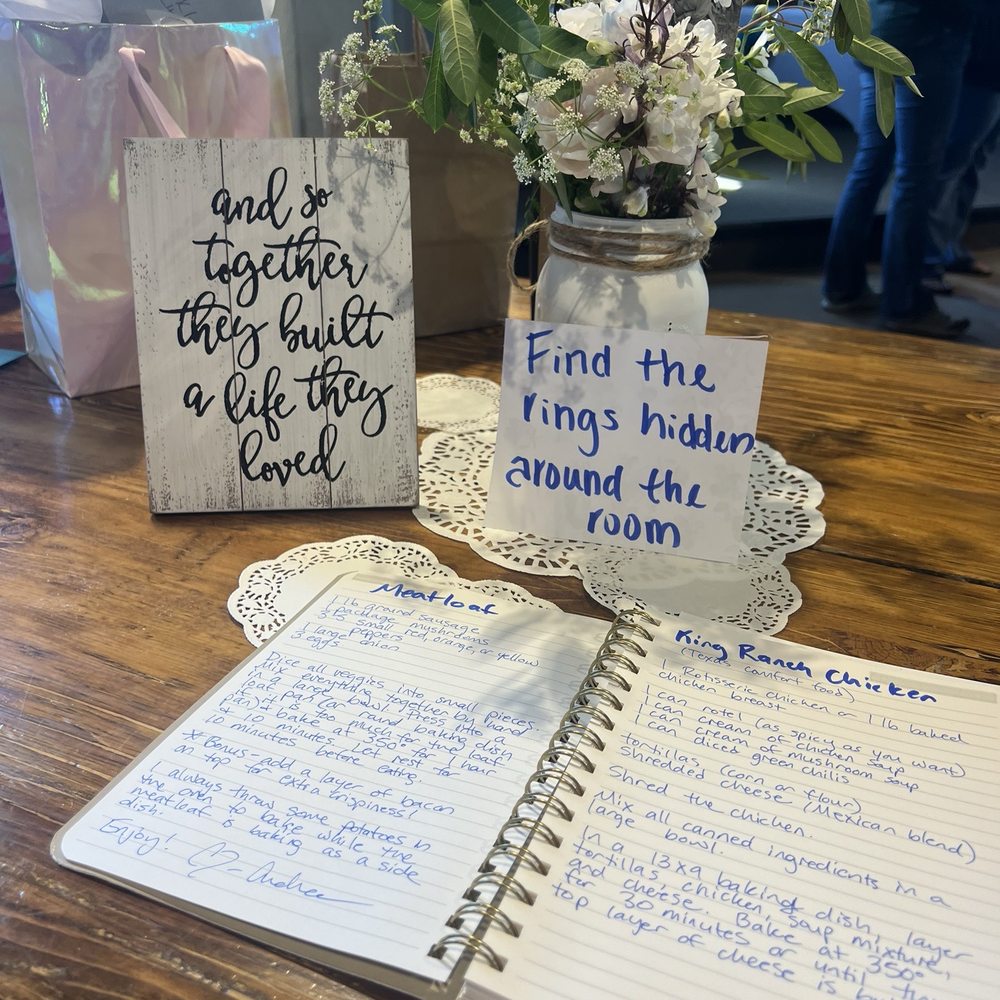 and so
together
they built
a life they
loved
Find the
rings hidden
around the
room
Meatloaf
1 lb ground sausage
1 package mushrooms
3-5 small red, orange, or yellow
peppers
1 large onion
3 eggs
Dice all veggies into small pieces
Mix everything together by hand
in a large bowl. Press into a
loaf pan (or round baking dish
if it is too much for the loaf
pan). Bake at 350° for 1 hour
minutes. Let rest for
10 minutes before eating.
** Bonus - add a layer of bacon
on top for extra crispiness!
I always throw some potatoes in
the oven to bake while the
meatloaf is baking as a side
dish.
Enjoy!
King Ranch Chicken
(Texas comfort food)
1 Rotisserie chicken or 1 lb baked
chicken breast
1 can rotel (as spicy as you want)
1 can cream of chicken soup
1 can cream of mushroom soup
1 can diced green chilis
tortillas (corn or flour)
shredded cheese (Mexican blend)
Shred the chicken.
Mix all canned ingredients in a
large bowl.
In a 13x9 baking dish, layer
tortillas, chicken, soup mixture,
and cheese. Bake at 350°
for 30 minutes or until the
top layer of cheese is